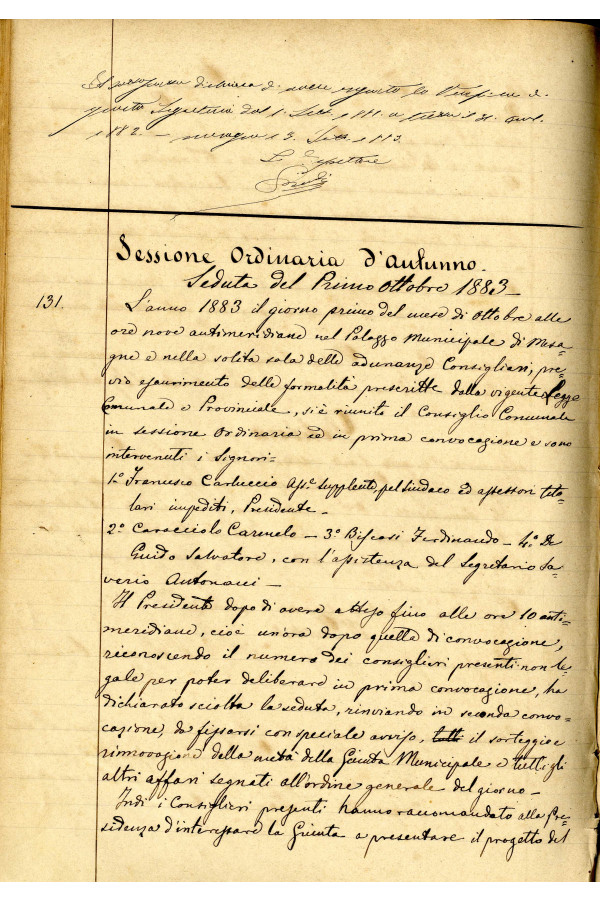 dichiara di avere
dal 1. Sett.
1882. —
Sessione Ordinaria d'Autunno.
Seduta del Primo Ottobre 1883 —
131.
L'anno 1883 il giorno primo del mese di Ottobre alle
ore nove antimeridiane nel Palazzo Municipale di Mesa=
gne e nella solita sala delle adunanze Consigliari, pre=
vio esaurimento delle formalità prescritte dalla vigente Legge
Comunale e Provinciale, si è riunito il Consiglio Comunale
in sessione Ordinaria ed in prima convocazione e sono
intervenuti i Signori-
1.º Francesco Carluccio Ass.e supplente, pel Sindaco ed assessori tito=
lari impediti, Presidente —
2.º Caracciolo Carmelo — 3.º Ferdinando — 4.º De
Guido Salvatore, con l'assistenza del Segretario Sa=
verio Antonucci —
Il Presidente dopo di avere atteso fino alle ore 10 anti=
meridiane, cioè un'ora dopo quella di convocazione,
riconoscendo il numero dei consiglieri presenti non le=
gale per poter deliberare in prima convocazione, ha
dichiarato sciolta la seduta, rinviando in seconda convo=
cazione, da fissarsi con speciale avviso, il sorteggio e
rinnovazione della metà della Giunta Municipale e tutti gli
altri affari segnati all'ordine generale del giorno —
Indi i Consiglieri presenti hanno raccomandato alla Pre=
sidenza d'interessare la Giunta a presentare il progetto del